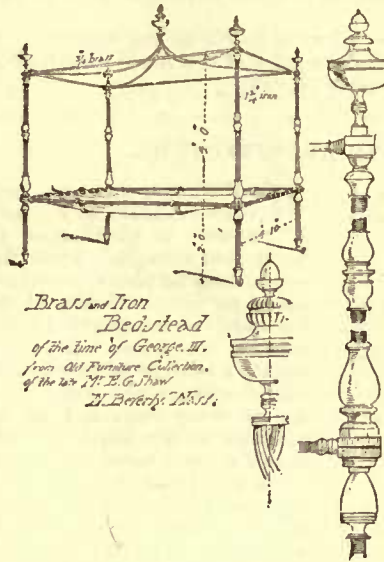 Brass
iron
Brass and Iron
Bedstead
of the time of George III.
from Old Furniture Collection.
of the late Mr. E. G. Shaw
N. Beverly. Mass.